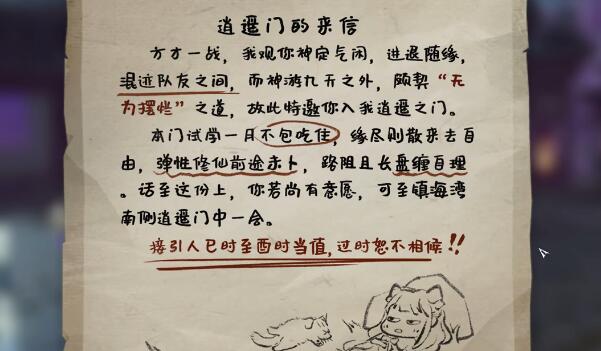 逍遥门的来信
方才一战，我观你神定气闲，进退随缘，
混迹队友之间，而神游九天之外，颇契“无
为摆烂”之道，故此特邀你入我逍遥之门。
本门试学一月不包吃住，缘尽则散来去自
由，弹性修仙前途未卜，路阻且长盘缠自理
。话至这份上，你若尚有意愿，可至镇海湾
南侧逍遥门中一会。
接引人巳时至酉时当值，过时恕不相候！！